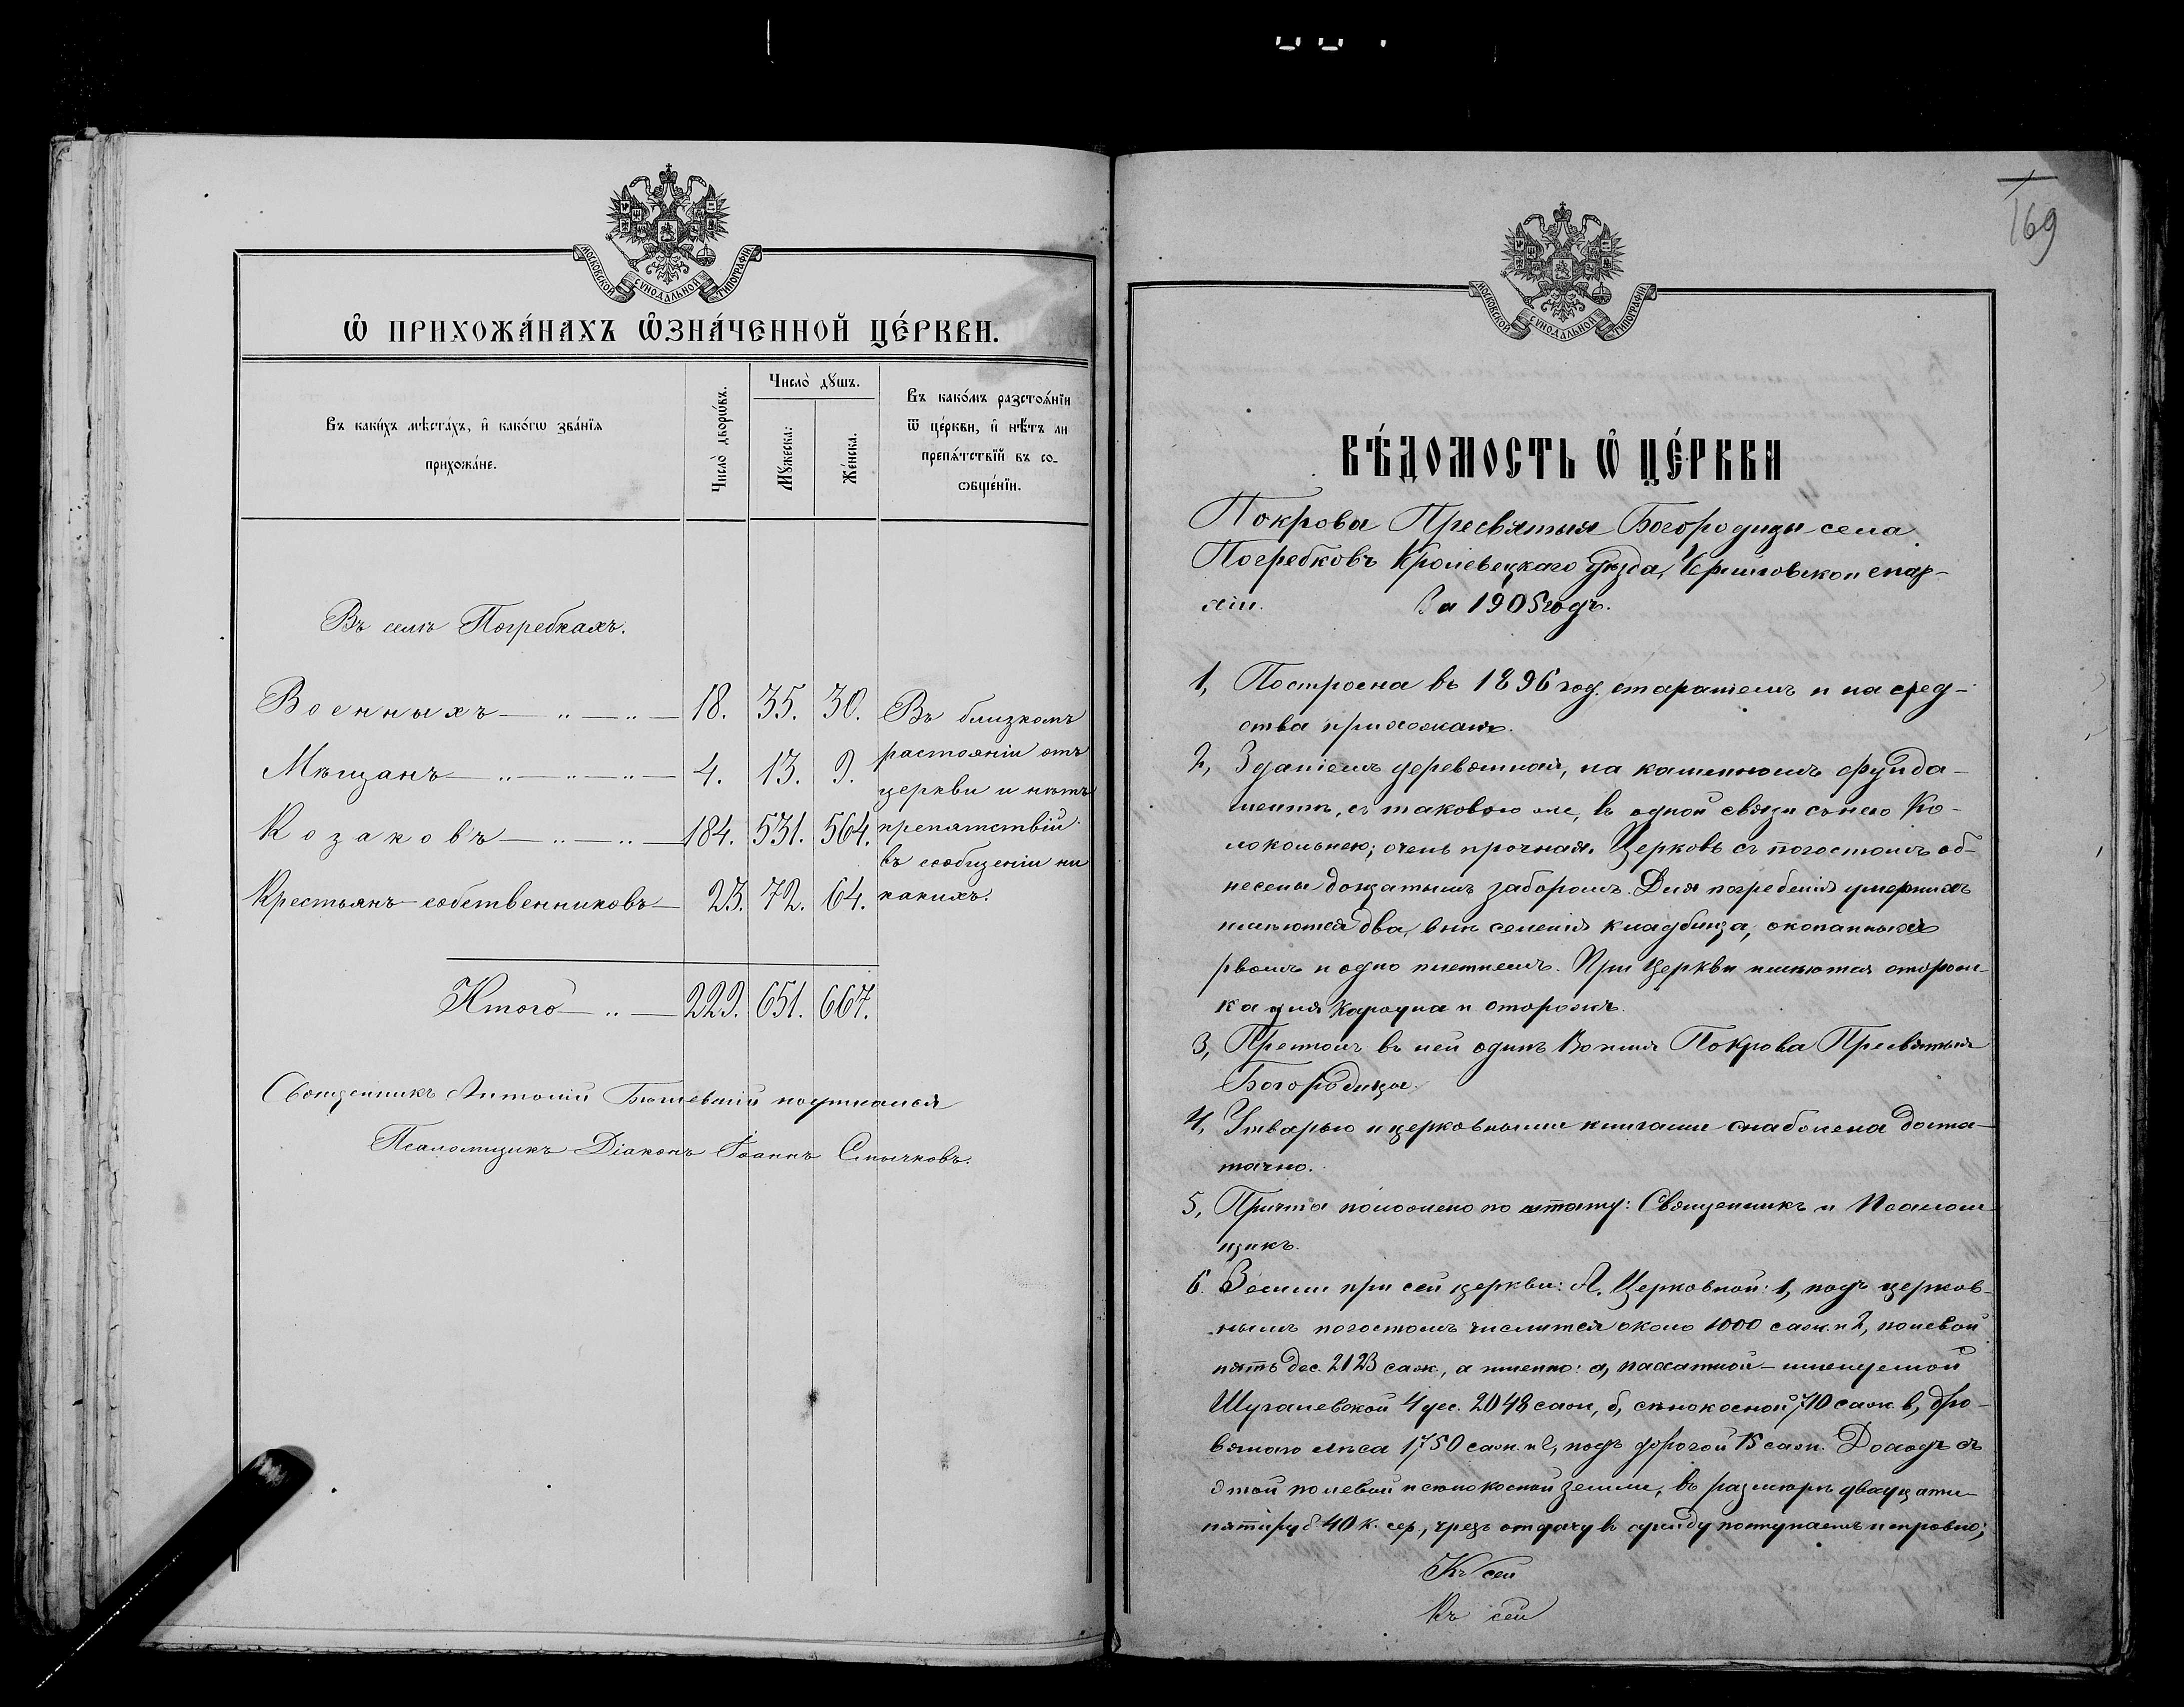 169
МОСКОВСКОЙ СѴНОДАЛЬНОЙ ТИПОГРАФІИ
Ѽ ПРИХОЖА́НАХЪ Ѽ҆ЗНА́ЧЕННОЙ ЦЕ́РКВИ.
Въ каки́хъ мѣста́хъ, и҆ како́гѡ зва́нїѧ
прихожа́не.
Число̀ дворѡ́въ.
Число̀ дꙋшъ.
Мꙋ́жеска:
Же́нска.
Въ како́мъ разстоѧ́нїи
ѿ це́ркви, и҆ нѣ́тъ ли
препѧ́тствїй въ со-
ѡбще́нїи.
Въ селѣ Погребкахъ.
Военныхъ — „ — „ — 18. 35. 30. Въ близкомъ
растояніи отъ
Мѣщанъ — „ — „ — „ — 4. 13. 9.
церкви и нѣтъ
Козаковъ — „ — „ — 184. 531. 564. препятствій
въ сообщеніи ни
Крестьянъ-собственниковъ — 23. 72. 64. какихъ.
Итого — „ — 229. 651. 667.
Священникъ Антоній
Псаломщикъ Діаконъ Іоаннъ Смычковъ.
МОСКОВСКОЙ СѴНОДАЛЬНОЙ ТИПОГРАФІИ
ВѢ́ДОМОСТЬ Ѽ ЦЕ́РКВИ
Покрова Пресвятыя Богородицы села
Погребковъ Кролевецкаго уѣзда, Черниговской епар-
хіи. За 1905 годъ.
1, Построена въ 1896 год. стараніемъ и на сред-
ства прихожанъ.
2, Зданіемъ деревянная, на каменномъ фунда-
ментѣ, съ таковою же, въ одной связи съ нею Ко-
локольнею; очень прочная. Церковь съ погостомъ об-
несены дощатымъ заборомъ. Для погребенія умершихъ
имѣются два, внѣ селенія кладбища, окопанныя
рвомъ и одно плетнемъ. При Церкви имѣются сторож-
ка для караула и сторожъ.
3, Престолъ въ ней одинъ Во имя Покрова Пресвятыя
Богородицы.
4, Утварью и церковными книгами снабжена доста-
точно.
5, Причта положено по штату: Священникъ и Псалом-
щикъ.
6. Земли при сей церкви: А. Церковной: 1, подъ церков-
нымъ погостомъ числится около 1000 саж. и 2, полевой
пять дес. 2123 саж., а именно: а, пахатной — именуемой
4 дес. 2048 саж., б, сѣнокосной 710 саж. в, дро-
вяного лѣса 1750 саж. и г, подъ дорогой 15 саж. Доходъ съ
этой полевой и сѣнокосной земли, въ размѣрѣ двадцати-
пяти руб. 40 к. сер., чрезъ отдачу въ аренду поступаетъ исправно;
Къ сей
Къ сей